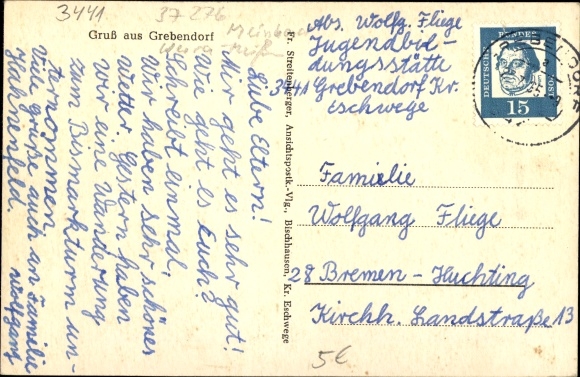 3441
37276
Gruß aus Grebendorf
Liebe Eltern!
Mir geht es sehr gut!
Wie geht es Euch?
Schreibt einmal,
Wir haben sehr schönes
Wetter. Gestern haben
wir eine Wanderung
zum Bismarkturm un-
ternommen.
Viele grüße auch an Familie
Hohenfeld. Wolfgang
Fr. Streitenberger, Ansichtspostk.-Vlg., Bischhausen, Kr. Eschwege
Abs. Wolfg. Fliege
Jugendbild-
dungsstätte
3441 Grebendorf Kr.
Eschwege
DEUTSCHE BUNDESPOST
15
Familie
Wolfgang Fliege
28 Bremen-Huchting
Kirchh. Landstraße 13
5€